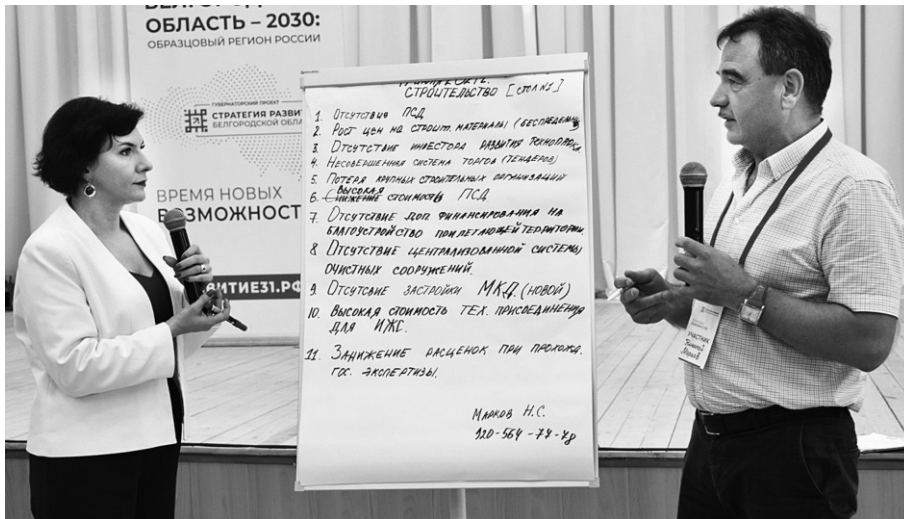 ОБЛАСТЬ – 2030:
ОБРАЗЦОВЫЙ РЕГИОН РОССИИ
ГУБЕРНАТОРСКИЙ ПРОЕКТ
СТРАТЕГИЯ РАЗВИТ
БЕЛГОРОДСКОЙ ОБЛА
ВРЕМЯ НОВЫХ
ВОЗМОЖНОСТ
ВИТИЕ31.РФ
СТРОИТЕЛЬСТВО [СТОЛ №5]
1. Отсутствие ПСД
2. Рост цен на строит. материалы (беспредемн
3. Отсутствие инвестора развития технопарка
4. Несовершенная система торгов (тендеров)
5. Потеря крупных строительных организаций
Высокая
6. Снижение стоимость ПСД
7. Отсутствие доп финансирования на
благоустройство прилегающей территории
8 Отсутствие централизованной системы
очистных сооружений.
9. Отсутсвие застройки МКД. (новой)
10. Высокая стоимость тех. присоединения
для ИЖС.
11. Занижение расценок при прохожд.
гос. экспертизы.
Марков Н.С.
920-564-74-48
УЧАСТНИК